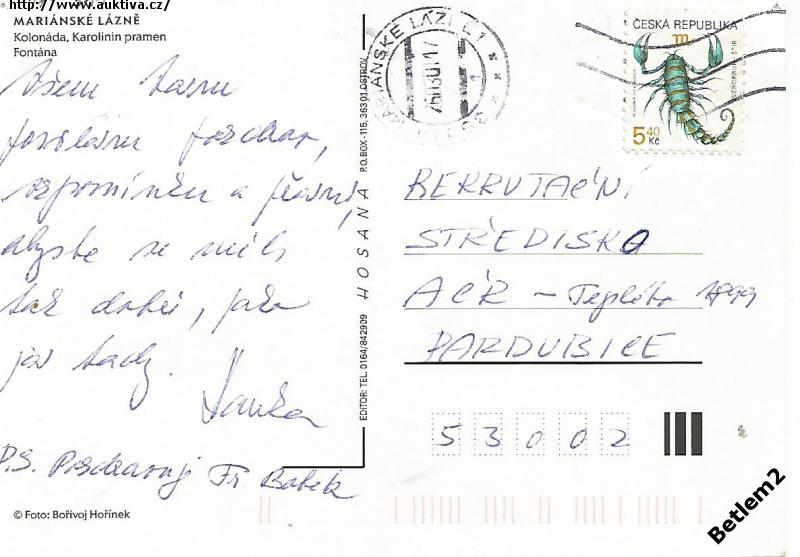 http://www.auktiva.cz/
MARIÁNSKÉ LÁZNĚ
Kolonáda, Karolinin pramen
Fontána
Všem
pozdrav,
vzpomínku a přání,
abyste se měli
tak dobře, jako
já tady.
P.S. Pozdravuj Fr. Bobek
© Foto: Bořivoj Hořínek
EDITOR: TEL. 0164/842909 HOSANA P.O.BOX -115, 363 01 OSTROV
MARIÁNSKÉ LÁZNĚ 1
ČESKÁ REPUBLIKA
5,40
Kč
REKRUTAČNÍ
STŘEDISKO
AČR - Teplého 1899
PARDUBICE
53002
Betlem2